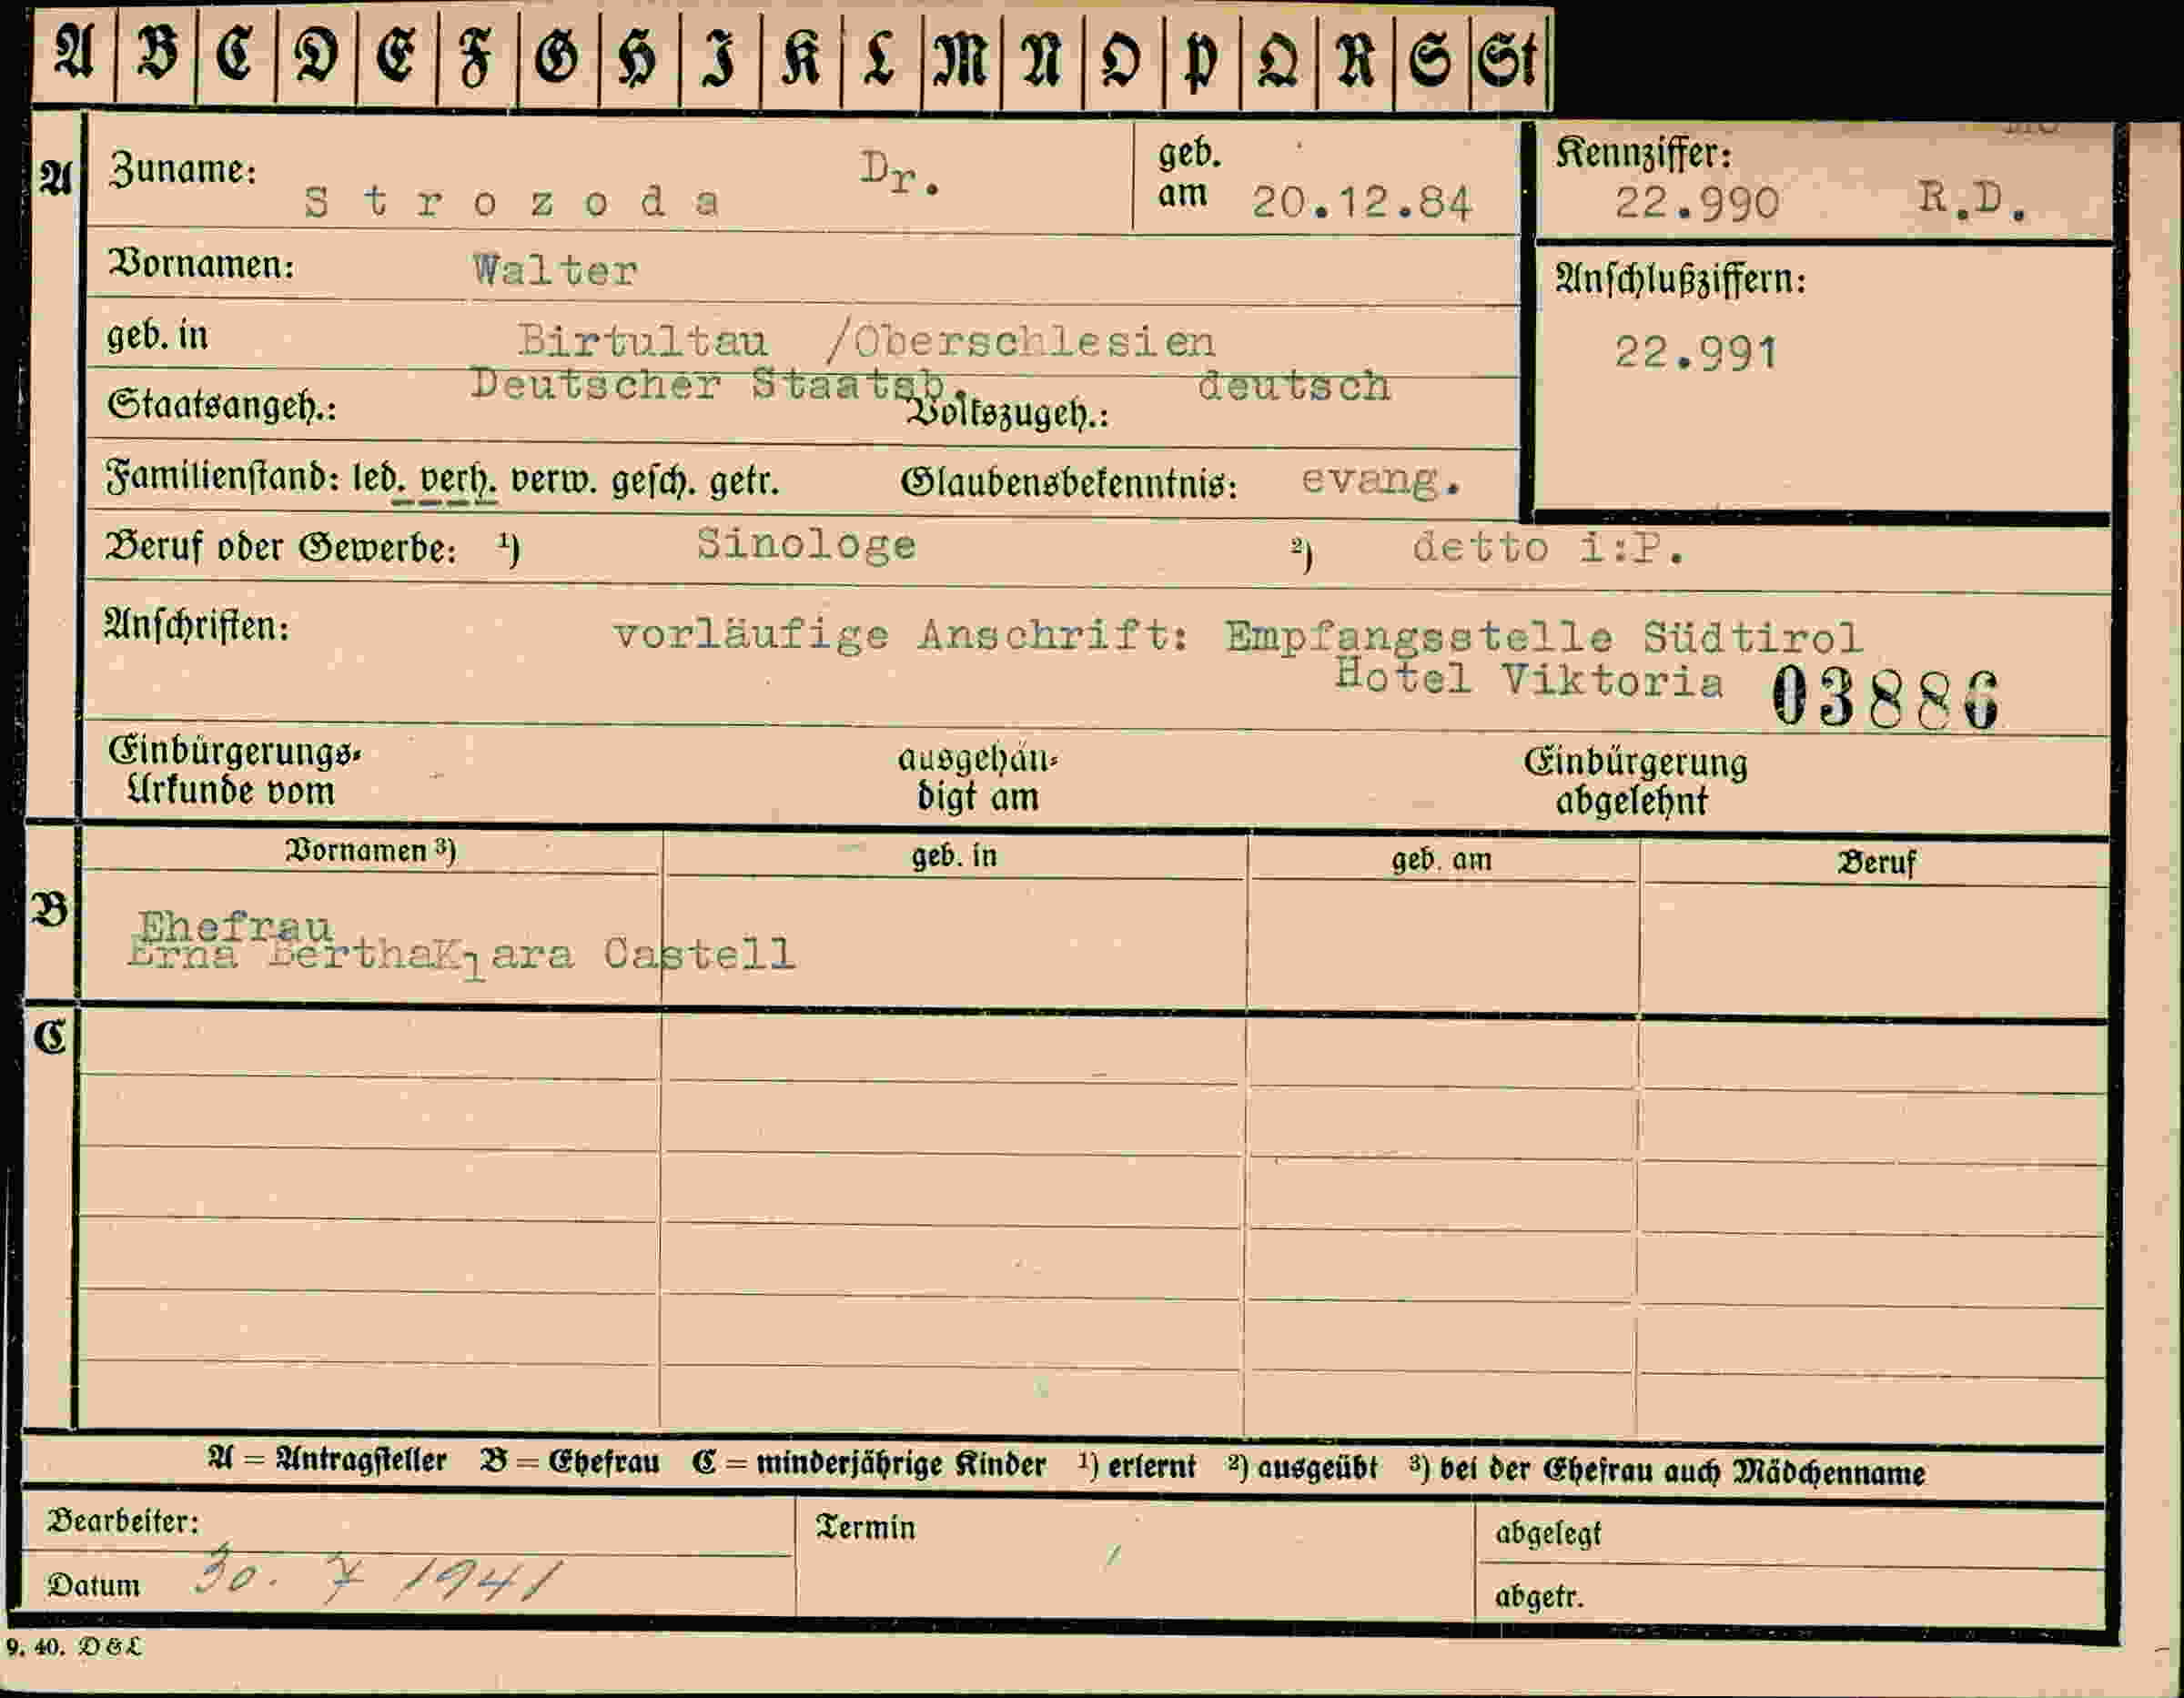 A B C D E F G H I K L M N O P Q R S St
A Zuname: Strozoda Dr. geb. am 20.12.84
Kennziffer: 22.990 R.D.
Vornamen: Walter
Anschlußziffern:
geb. in Birtultau /Oberschlesien
22.991
Staatsangeh.: Deutscher Staatsb. Volkszugeh.: deutsch
Familienstand: led. verh. verw. gesch. getr. Glaubensbekenntnis: evang.
Beruf oder Gewerbe: ¹) Sinologe ²) detto i:P.
Anschriften: vorläufige Anschrift: Empfangsstelle Südtirol
Hotel Viktoria 03886
Einbürgerungs- ausgehän- Einbürgerung
Urkunde vom digt am abgelehnt
Vornamen ³) geb. in geb. am Beruf
B Ehefrau
Erna BerthaKlara Castell
C
A = Antragsteller B = Ehefrau C = minderjährige Kinder ¹) erlernt ²) ausgeübt ³) bei der Ehefrau auch Mädchenname
Bearbeiter: Termin abgelegt
Datum 30. 7 1941 abgetr.
9. 40. D & L